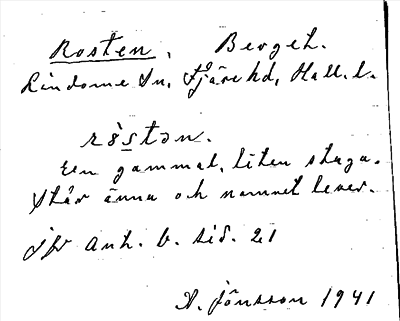 Rosten. Bergeh.
Lindome Sn, Fjäre hd, Hall. l.
ròstən.
En gammal, liten stuga.
Står ännu och namnet lever.
Jfr Anh. b. sid. 21
A. Jönsson 1941